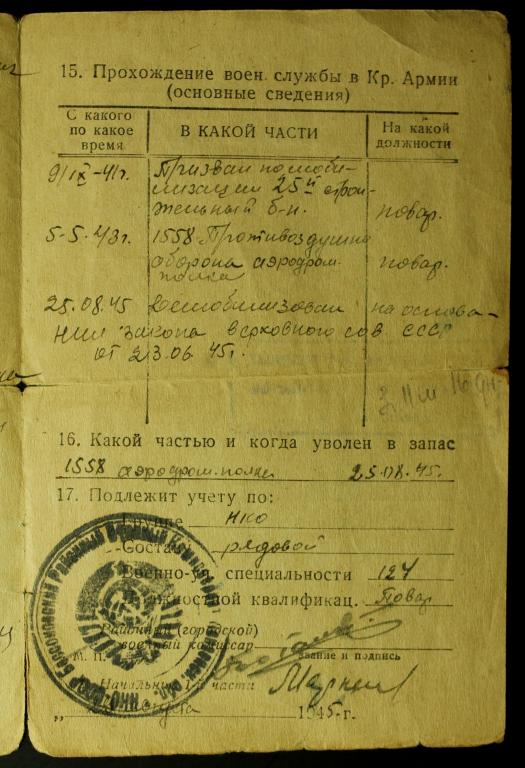 15. Прохождение воен. службы в Кр. Армии
(основные сведения)
С какого по какое время
В КАКОЙ ЧАСТИ
На какой должности
9/IX-41г. Призван по моби-
лизации 25й строи-
тельный б-н. повар.
5-5-43г. 1558 Противоздушна
оборона аэродром. повар.
полка
25.08.45 Демобилизован на основа-
нии закона верховного сов СССР
от 23.06.45г.
16. Какой частью и когда уволен в запас
1558 аэродром. полка 25.08.45.
17. Подлежит учету по:
Группе НКО
Состав рядовой
Военно-уч. специальности 124
Должностной квалификац. Повар
Районный (городской)
военный комиссар
звание и подпись
М. П.
Начальник 1-й части
1945-г.